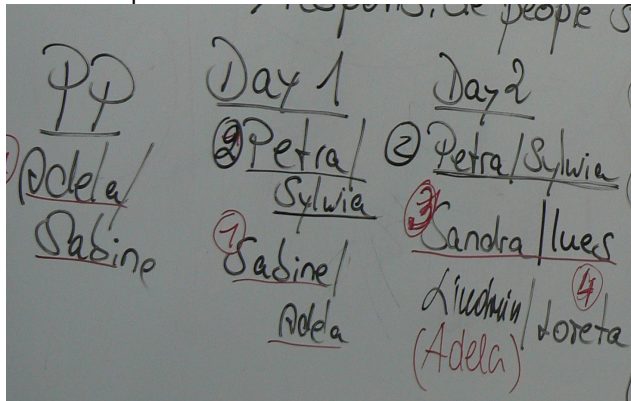 people s
PP
Adela/
Sabine
Day 1
② Petra/
Sylwia
① Sabine/
Adela
Day 2
② Petra/Sylwia
③ Sandra/Ines
④
/Loreta
(Adela)